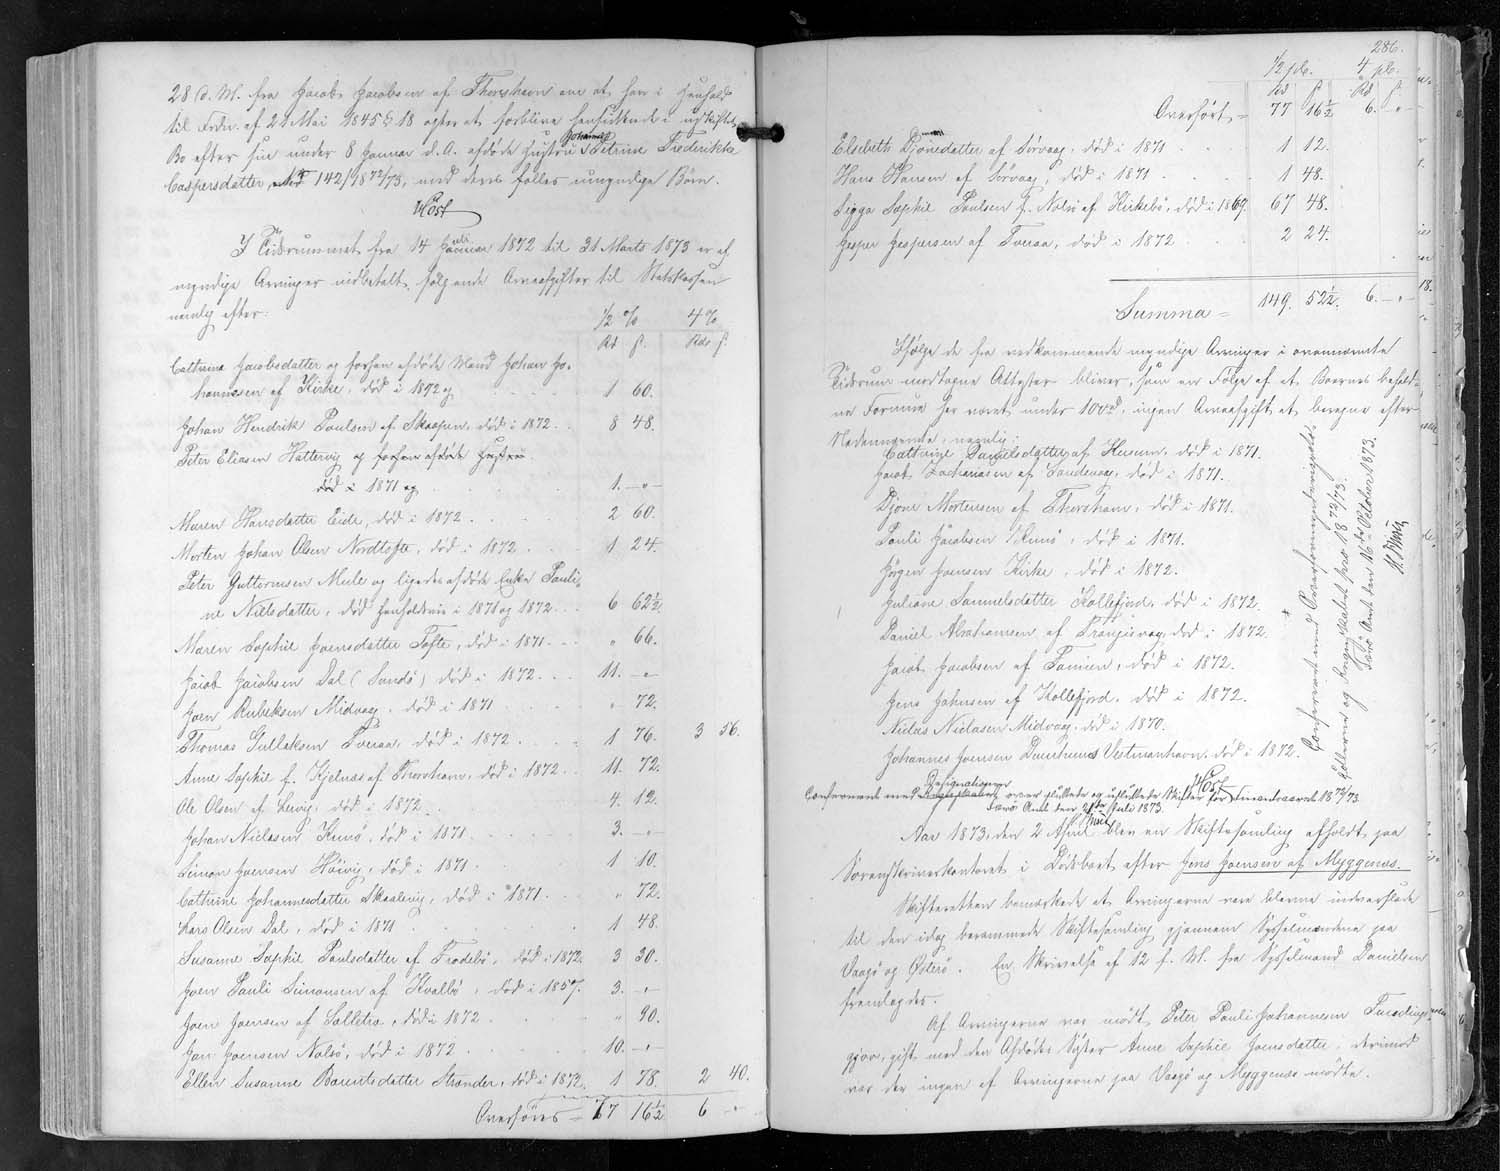 28 d. M. fra Jacob Jacobsen af Thorshavn om at han i Henhold
til Frdn. af 21 Mai 1845 § 18 agter at forblive hensiddende i uskiftet
Bo efter sin under 8 Januar d. A. afdøde Hustru Johanna Petrine Frederikke
Caspersdatter, 142/1872/73, med deres fælles umyndige Børn.
Høst
I Tidsrummet fra 14 Juli 1872 til 31 Marts 1873 er af
myndige Arvinger indbetalt følgende Arveafgifter til Statskassen
nemlig efter:
1/2 % 4 %
Rd ß. Rd ß.
Cathrine Jacobsdatter og forhen afdøde Mand Johan Jo-
hannesen af Kirke, død i 1892 og 1 60.
Johan Hendrik Poulsen af Skaapen, død i 1872 8 48.
Peter Eliasen Hattervig og forhen afdøde Hustru
død i 1871 og 1. — "
Maren Hansdatter Eide, død i 1872 2 60.
Morten Johan Olsen Nordtofte, død i 1872 1 24.
Peter Guttormsen Mule og ligeledes afdøde Enke Pauli-
ne Nielsdatter, død henholdsvis i 1871 og 1872 6 62½
Maren Sophie Joensdatter Tofte, død i 1871 " 66.
Jacob Jacobsen Dal (Sandø) død i 1872 11. — "
Joen Rubeksen Midvaag, død i 1871 " 72.
Thomas Gullaksen Tveraa, død i 1872 1 76. 3 56.
Anne Sophie f. Kjelnæs af Thorshavn, død i 1872 11. 72.
Ole Olsen af Lervig, død i 1872 4. 12.
Johan Niclasen Kunø, død i 1871 3. — "
Simon Joensen Høivig, død i 1871 1 10.
Cathrine Johannesdatter Skaalevig, død i 1871 " 72.
Lars Olsen Dal, død i 1871 1 48.
Susanne Sophie Poulsdatter af Frodebø, død i 1872 3 30.
Joen Pauli Simonsen af Hvalbø, død i 1857. 3. — "
Joen Joensen af Selletræ, død i 1872 " 90.
Jon Joensen Nolsø, død i 1872 10. — "
Ellen Susanne Barentsdatter Strander, død i 1872 1 78. 2 40.
Overføres = 77 16½ 6 — "
286.
1/2 pCt. 4 pCt.
Rd ß Rd ß.
Overført = 77 16½ 6. — "
Elsebeth Djonedatter af Sørvaag, død i 1871 1 12.
Hans Hansen af Sørvaag, død i 1871 1 48.
Sigga Sophie Poulsen f. Nolsø af Kirkebø, død i 1869. 67 48.
Jesper Jespersen af Tveraa, død i 1872 2 24.
Summa = 149. 52½. 6. — "
Ifølge de fra vedkommende myndige Arvinger i ovennævnte
Tidsrum modtagne Attester bliver, som en Følge af at Boernes behold-
ne Formue har været under 100 Rd, ingen Arveafgift at beregne efter
Nedennævnte, nemlig:
Cathrine Danielsdatter af Husum, død i 1871.
Jacob Zachariasen af Sandevaag, død i 1871.
Djone Mortensen af Thorshavn, død i 1871.
Pauli Jacobsen Kunø, død i 1871.
Jørgen Joensen Kirke, død i 1872.
Juliane Samuelsdatter Kollefjord, død i 1872.
Daniel Abrahamsen af Trangisvaag, død i 1872.
Jacob Jacobsen af Famien, død i 1872.
Jens Johnsen af Kollefjord, død i 1872.
Niclas Niclasen Midvaag, død i 1870.
Johannes Joensen Vestmanhavn, død i 1872.
Høst
Confereret med Overformynderiregnskabet
1872/73.
Færø Amt den 16de October 1873.
Confereret med Designationer over sluttede og usluttede Skifter for Finantsaaret 1872/73.
Færø Amt den 21de Juli 1873.
Aar 1873, den 2 April blev en Skiftesamling afholdt paa
Sorenskriverkontoret i Dødsboet efter Jens Joensen af Myggenæs.
Skifteretten bemærkede at Arvingerne vare blevne indvarslede
til den idag berammede Skiftesamling gjennem Sysselmændene paa
Vaagø og Østerø. En Skrivelse af 12 f. M. fra Sysselmand Danielsen
fremlagdes.
Af Arvingerne var mødt Peter Pauli Johannesen
gjov, gift med den Afdødes Søster Anne Sophie Joensdatter, derimod
var der ingen af Arvingerne paa Vaagø og Myggenæs mødte.